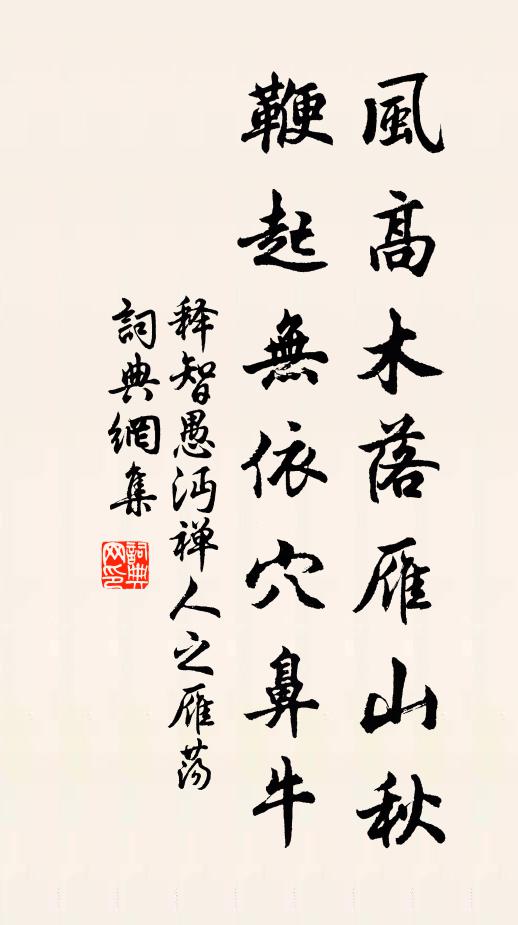 風高木落雁山秋
鞭起無依穴鼻牛
释智愚沔禅人之雁荡
詞典網集
詞典網印